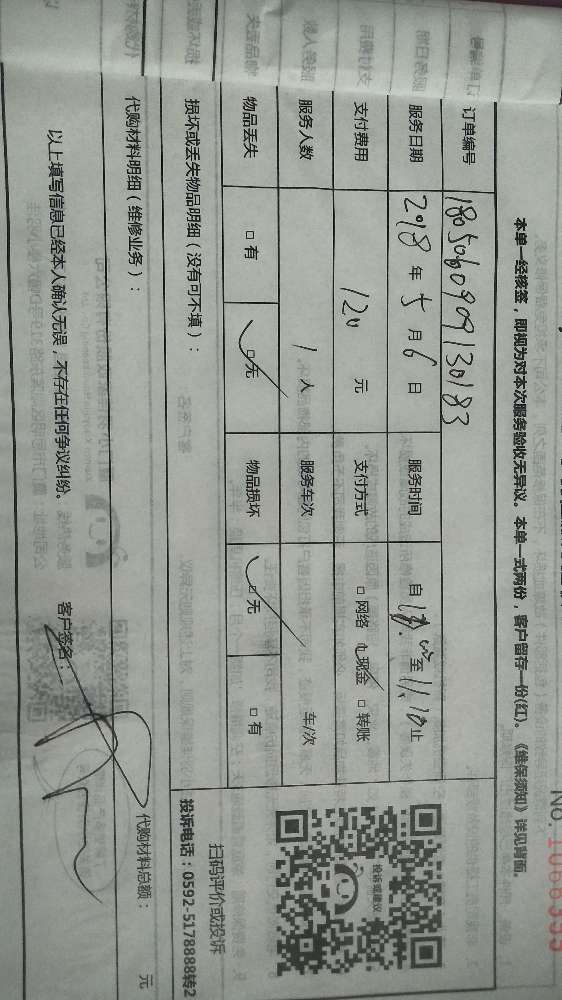 No. 1066355
本单一经核签，即视为对本次服务验收无异议。本单一式两份，客户留存一份(红)。《维保须知》详见背面
订单编号 1805060909130183
服务日期 2018 年 5 月 6 日 服务时间 自 至 11.10 止
支付费用 120 元 支付方式 □ 网络 □ 现金 □ 转账
服务人数 1 人 服务车次 车/次
物品丢失 □ 有 □ 无 物品损坏 □ 无 □ 有
损坏或丢失物品明细（没有可不填）：
代购材料明细（维修业务）：
代购材料总额： 元
以上填写信息已经本人确认无误，不存在任何争议纠纷。 客户签名：
投诉或建议
扫码评价或投诉
投诉电话：0592-5178888转2